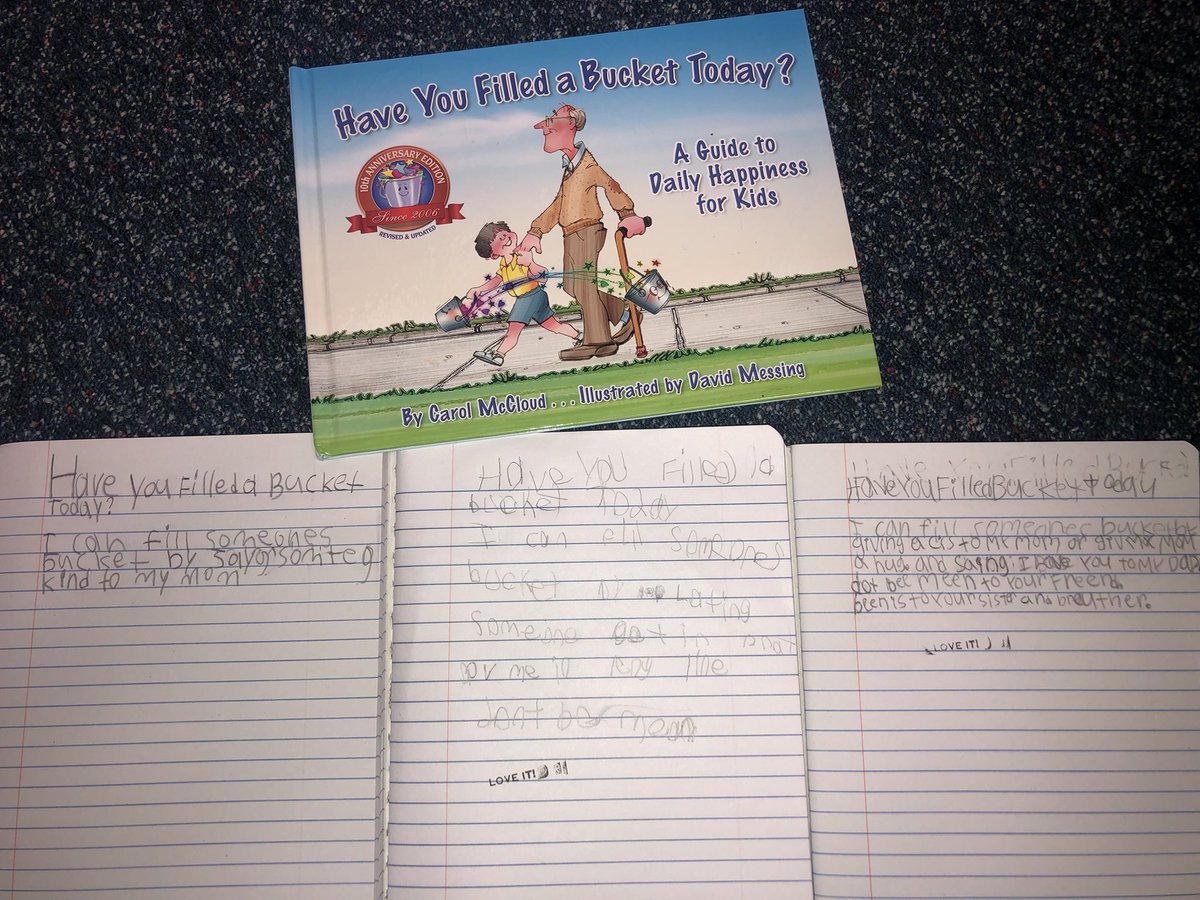 Have You Filled a Bucket Today?
A Guide to
Daily Happiness
for Kids
10th ANNIVERSARY EDITION
Since 2006
REVISED & UPDATED
By Carol McCloud . . . Illustrated by David Messing
Have You Filled a Bucket
Today?
I can fill someones
bucket by sayg somteg
kind to my mom
Have You Filled a
bucket Today
I can someones
bucket by lating
someone in
me in line
dont be mean
LOVE IT!
Have You Filled Bucket today
I can fill someones bucket by
giving a cis to my mom or give my mom
a hug and saing I have you to my Dad
dot bee meen to your freend
bee nis to your sistr and breuther.
LOVE IT!